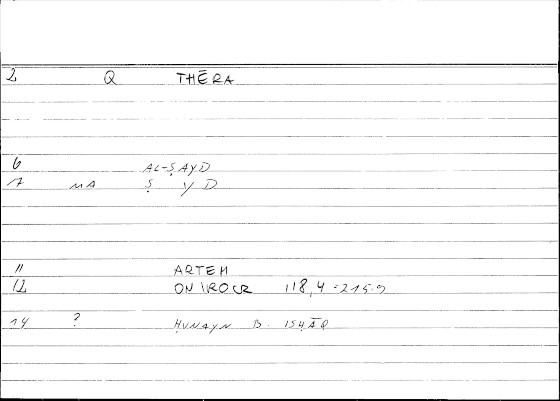 2 Q THĒRA
6 AL-ṢAYD
7 MA Ṣ Y D
11 ARTEM
12 ONIROCR 118,4 = 215.9
14 ? ḤUNAYN B. ISḤĀQ